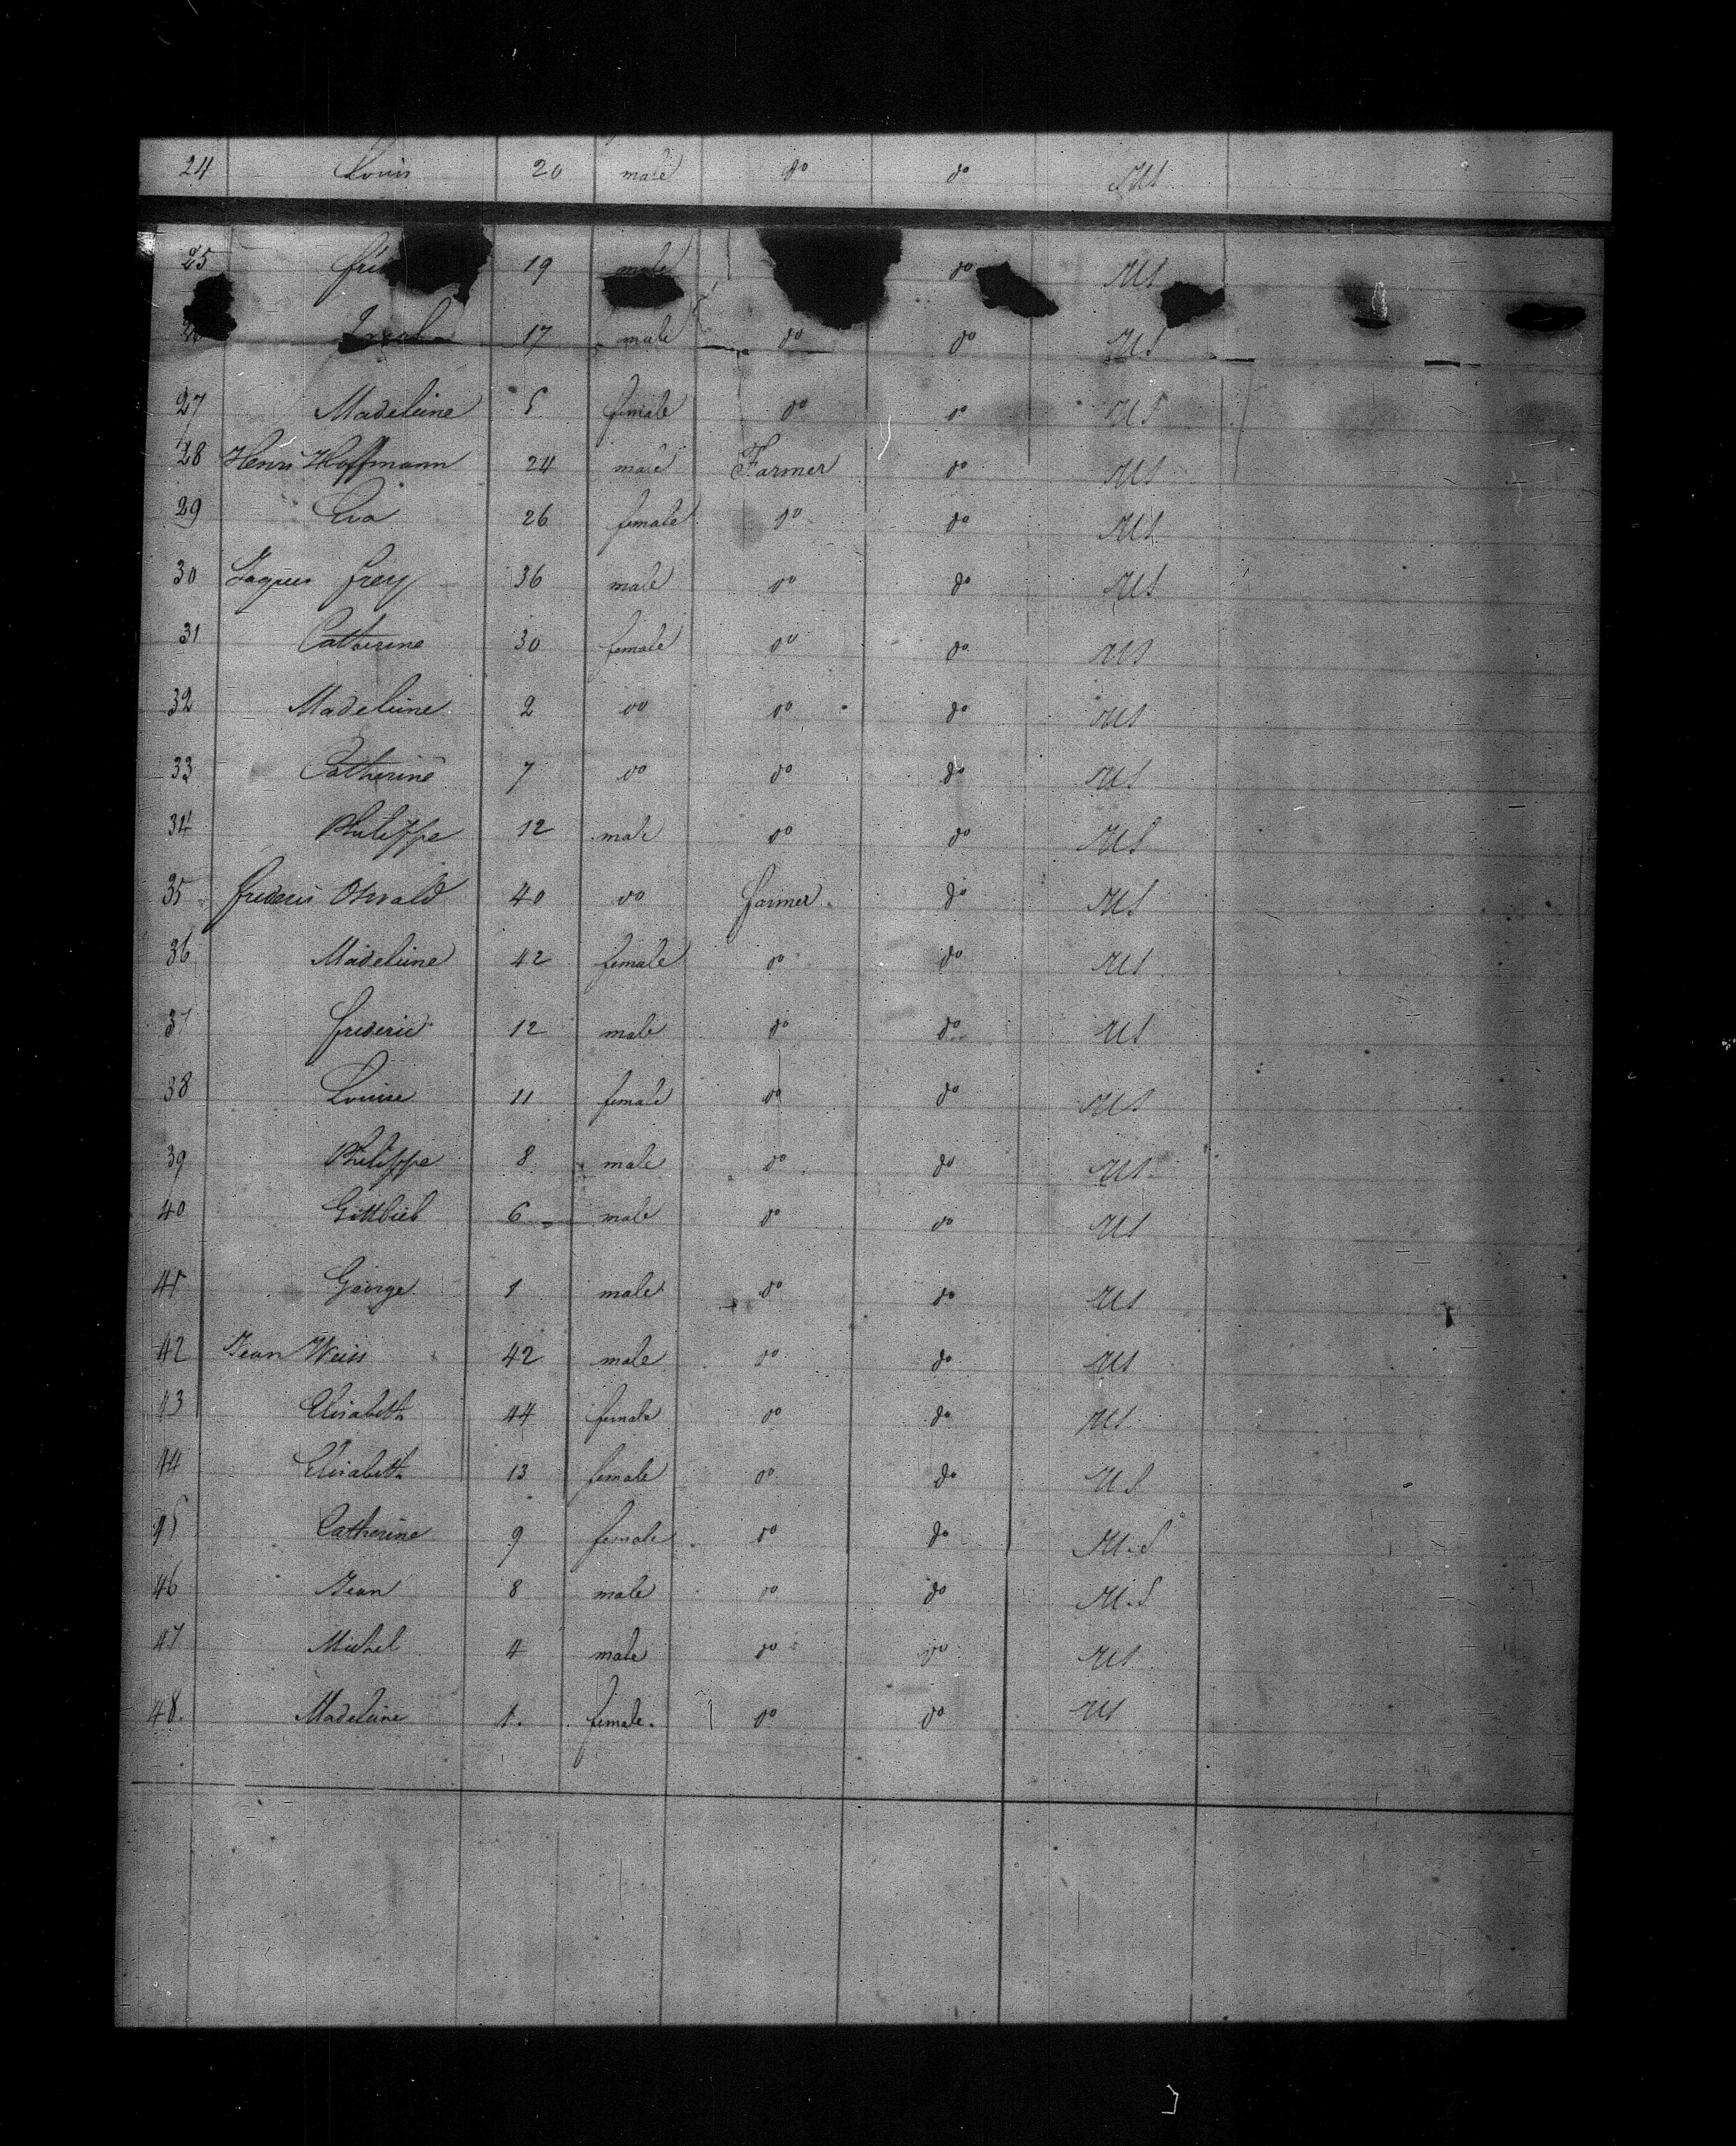 24 Louis 20 male do do US
25 19 male do US
17 male do do US
27 Madeleine 5 female do do US
28 Henri Hoffmann 24 male Farmer do US
29 Eva 26 female do do US
30 Jaques frey 36 male do do US
31 Catherine 30 female do do US
32 Madeleine 2 do do do US
33 Catherine 7 do do do US
34 Philippe 12 male do do US
35 frederic Oswald 40 do farmer do US
36 Madeleine 42 female do do US
37 frederic 12 male do do US
38 Louise 11 female do do US
39 Philippe 8 male do do US
40 Gottlieb 6 male do do US
41 George 1 male do do US
42 Jean Weiss 42 male do do US
43 Elisabeth 44 female do do US
44 Elisabeth 13 female do do US
45 Catherine 9 female do do U.S
46 Jean 8 male do do U.S
47 Michel 4 male do do US
48. Madeleine 1. female. do do US